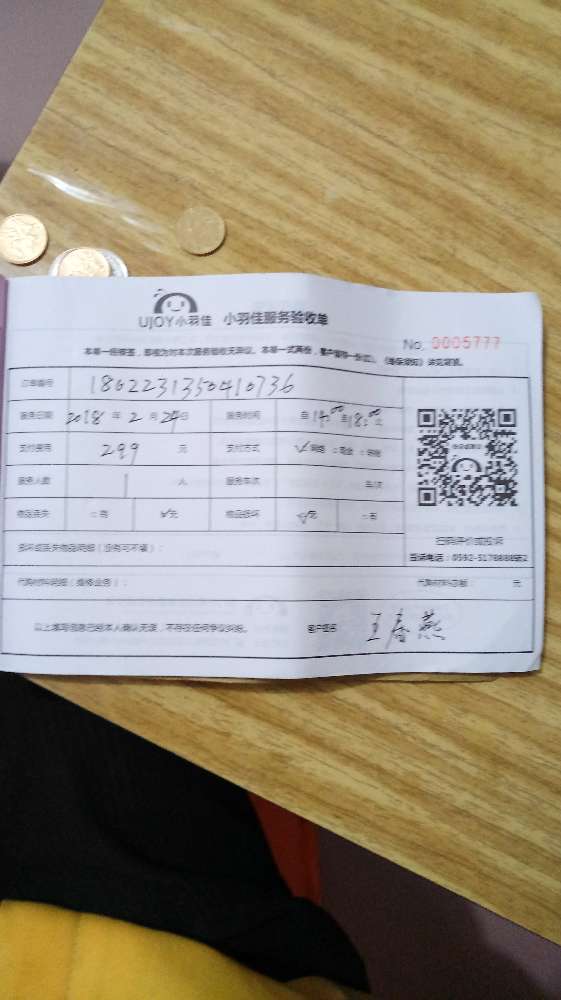 UJOY小羽佳 小羽佳服务验收单
No. 0005777
本单一经签签，即视为对本次服务验收无异议。本单一式两份，客户保存一份
订单编号 1802231350410736
服务日期 2018 年 2 月 24日 服务时间 自 14:00 至 18:00 止
支付费用 299 元 支付方式 ✓网络 □现金
服务人数 1 人 服务车次
物品丢失 □有 ✓无 物品损坏 ✓无 □有
扫码评价或投诉
投诉电话：0592-5178888转2
损坏或丢失物品明细（没有可不填）：
代购材料明细（维修业务）： 代购材料总额： 元
以上填写信息已经本人确认无误，不存在任何争议纠纷。 客户签名 王春燕